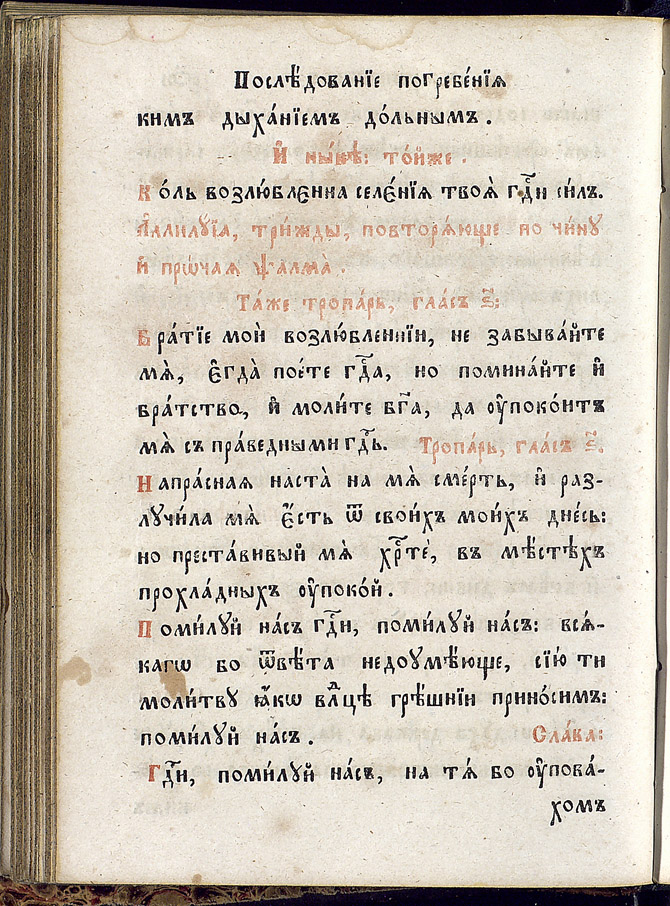 Послѣ́дованїе погребе́нїѧ
кимъ дыха́нїемъ до́льнымъ.
И҆ ны́нѣ: то́йже.
Ко́ль возлю́блєнна селє́нїѧ твоѧ̀ гдⷭ҇и си́лъ.
А҆ллилꙋ́їа, три́жды, повторѧ́юще по чи́нꙋ
и҆ прѡ́чаѧ ѱалма̀.
Та́же тропа́рь, гла́съ ѯ҃:
Бра́тїе моѝ возлю́бленнїи, не забыва́йте
мѧ̀, є҆гда̀ пое́те гдⷭ҇а, но помина́йте и҆
бра́тство, и҆ моли́те бг҃а, да оу҆поко́итъ
мѧ̀ съ пра́ведными гдⷭ҇ь. Тропа́рь, гла́съ ѯ҃.
Напра́сная наста̀ на мѧ̀ сме́рть, и҆ раз-
лꙋчи́ла мѧ̀ є҆́сть ѿ свои́хъ мои́хъ дне́сь:
но преста́вивый мѧ̀ хрⷭ҇тѐ, въ мѣ́стѣхъ
прохла́дныхъ оу҆поко́й.
Поми́лꙋй на́съ гдⷭ҇и, поми́лꙋй на́съ: всѧ́-
кагѡ бо ѿвѣ́та недоꙋмѣ́юще, сїю̀ ти
моли́твꙋ ꙗ҆́кѡ влⷣцѣ грѣ́шнїи прино́симъ:
поми́лꙋй на́съ. Сла́ва:
Гдⷭ҇и, поми́лꙋй на́съ, на тѧ́ бо оу҆пова́-
хомъ